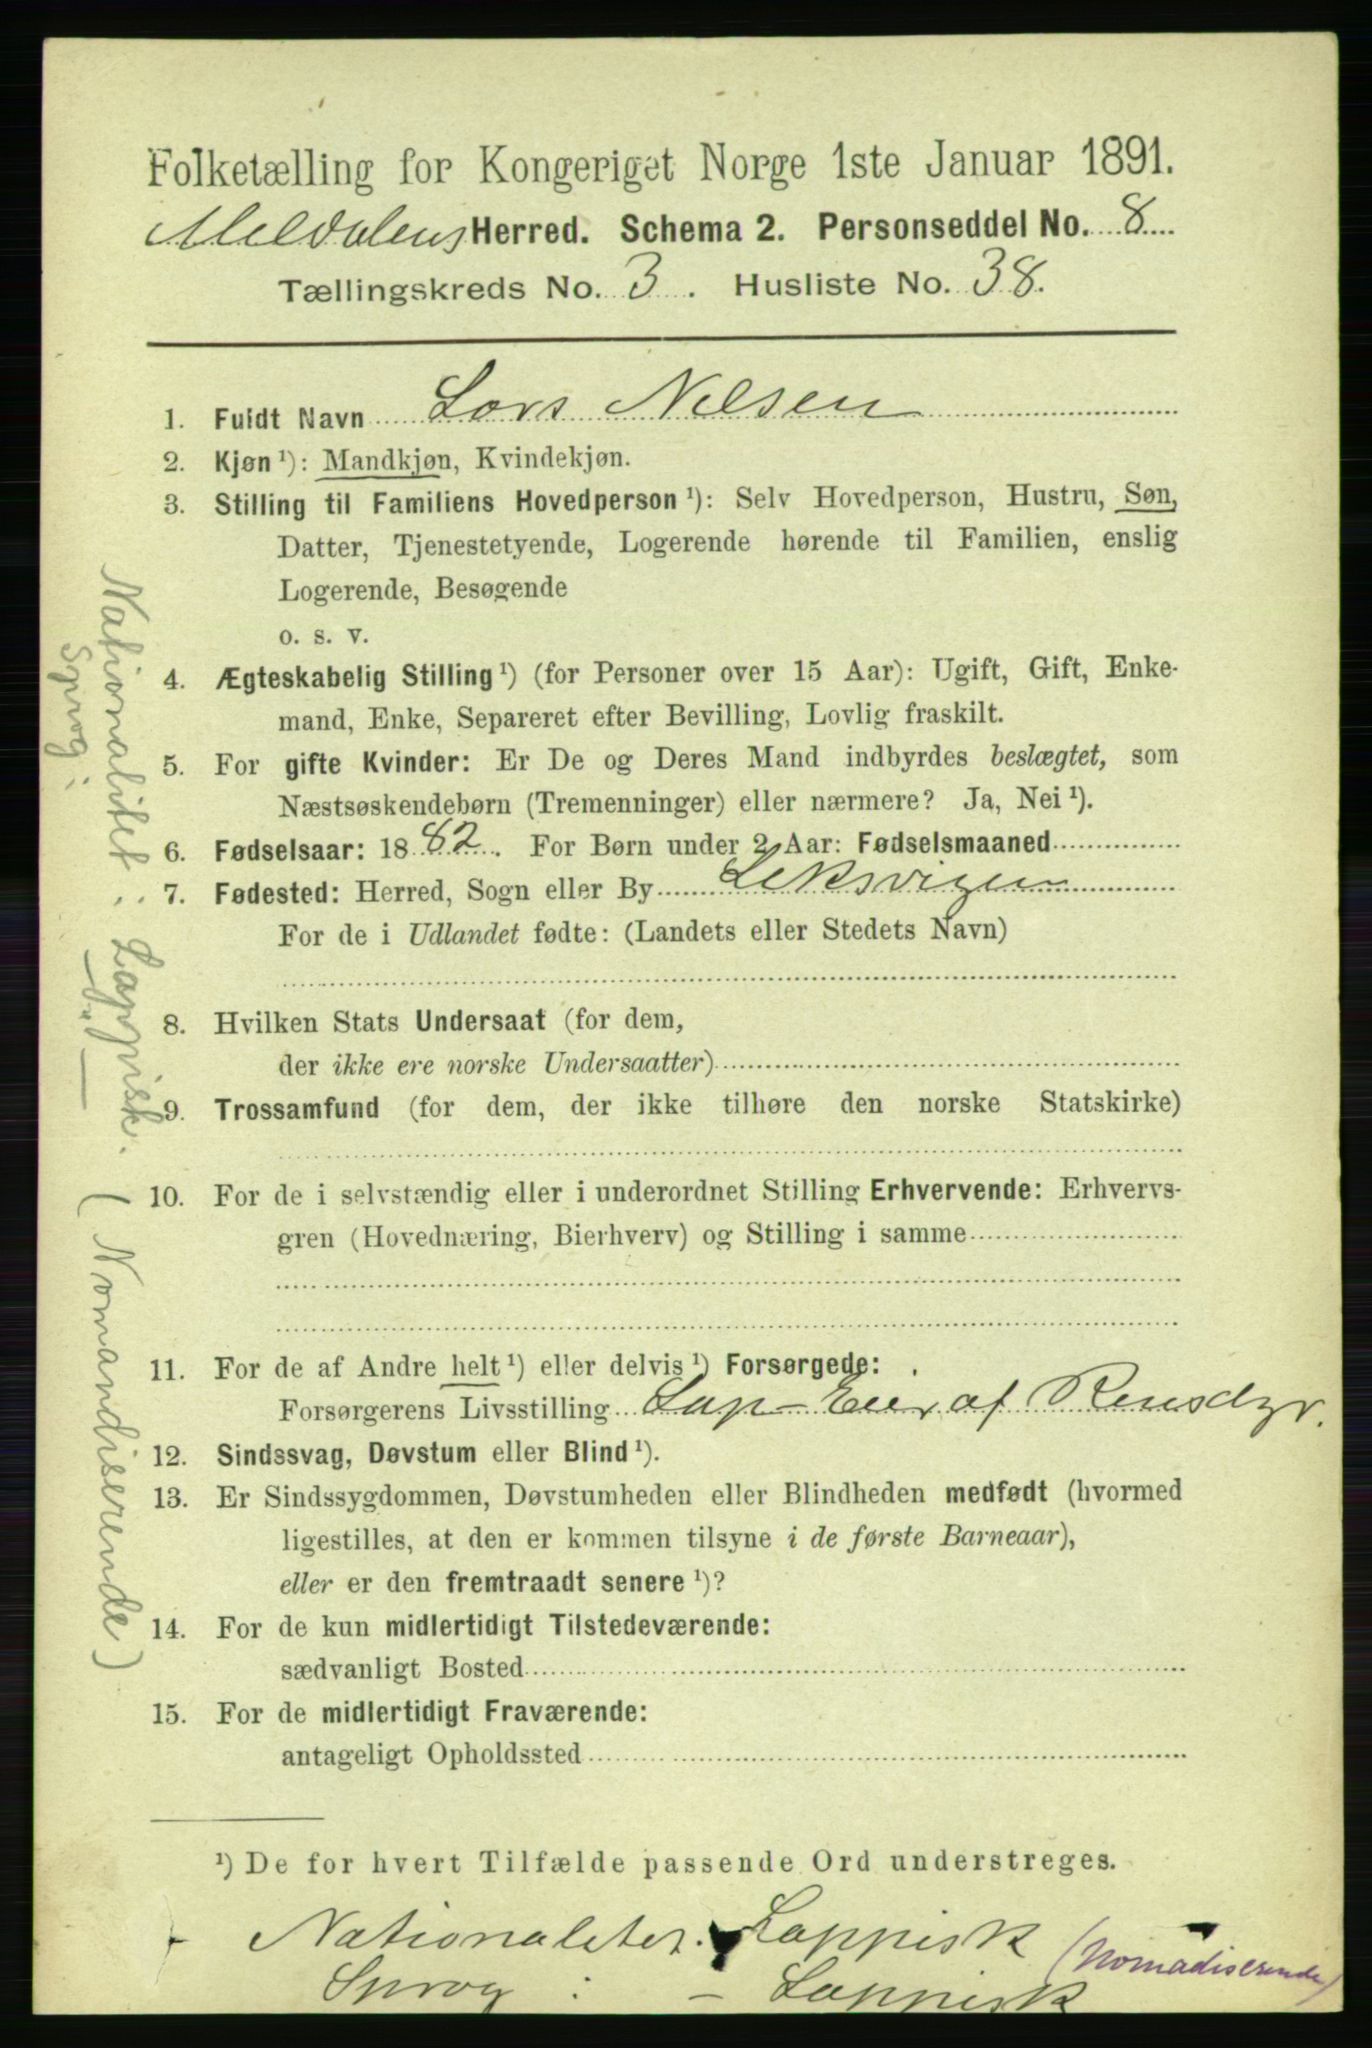 Folketælling for Kongeriget Norge 1ste Januar 1891.
Meldalens Herred. Schema 2. Personseddel No. 8
Tællingskreds No. 3. Husliste No. 38.
1. Fuldt Navn Lars Nilsen
2. Kjøn ¹): Mandkjøn, Kvindekjøn.
3. Stilling til Familiens Hovedperson ¹): Selv Hovedperson, Hustru, Søn,
Datter, Tjenestetyende, Logerende hørende til Familien, enslig
Logerende, Besøgende
o. s. v.
4. Ægteskabelig Stilling ¹) (for Personer over 15 Aar): Ugift, Gift, Enke-
mand, Enke, Separeret efter Bevilling, Lovlig fraskilt.
5. For gifte Kvinder: Er De og Deres Mand indbyrdes beslægtet, som
Næstsøskendebørn (Tremenninger) eller nærmere? Ja, Nei ¹).
6. Fødselsaar: 1882. For Børn under 2 Aar: Fødselsmaaned
7. Fødested: Herred, Sogn eller By Leksvigen
For de i Udlandet fødte: (Landets eller Stedets Navn)
8. Hvilken Stats Undersaat (for dem,
der ikke ere norske Undersaatter)
9. Trossamfund (for dem, der ikke tilhøre den norske Statskirke)
10. For de i selvstændig eller i underordnet Stilling Erhvervende: Erhvervs-
gren (Hovednæring, Bierhverv) og Stilling i samme
11. For de af Andre helt ¹) eller delvis ¹) Forsørgede:
Forsørgerens Livsstilling Lap-Eier af Rensdyr.
12. Sindssvag, Døvstum eller Blind ¹).
13. Er Sindssygdommen, Døvstumheden eller Blindheden medfødt (hvormed
ligestilles, at den er kommen tilsyne i de første Barneaar),
eller er den fremtraadt senere ¹)?
14. For de kun midlertidigt Tilstedeværende:
sædvanligt Bosted
15. For de midlertidigt Fraværende:
antageligt Opholdssted
¹) De for hvert Tilfælde passende Ord understreges.
Nationalitet. Lappisk (Nomadiserende)
Sprog : - Lappisk
Nationalitet: Lappisk. (Nomandiserende)
Sprog: — " —